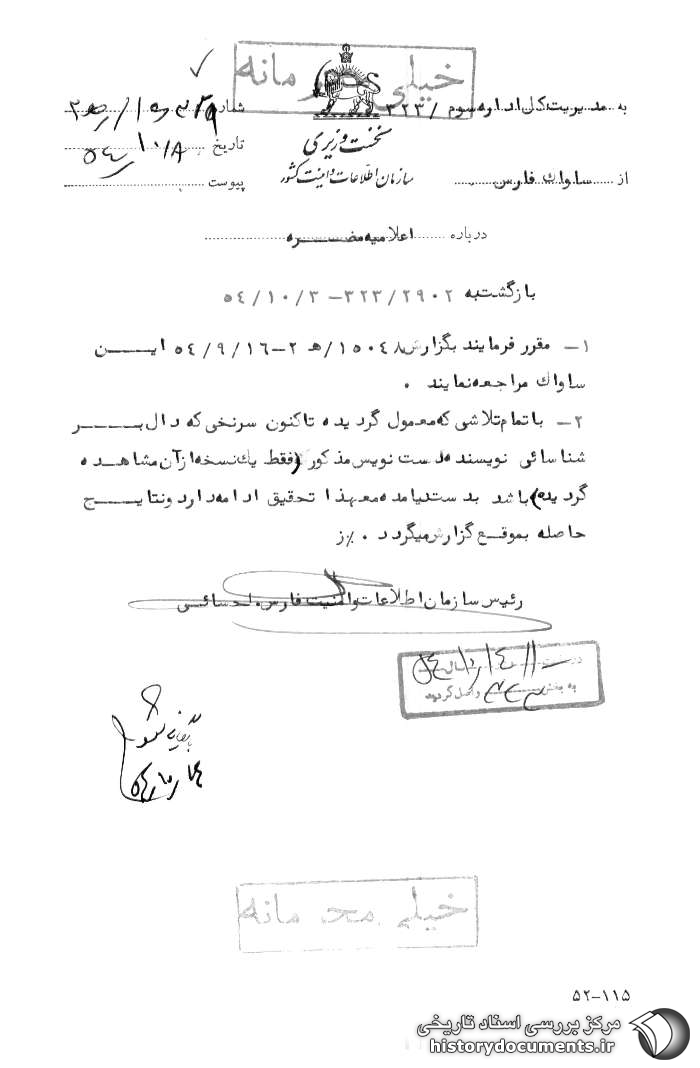 خیلی محرمانه
به مدیریت کل اداره سوم / ۳۲۳
شماره
نخست وزیری
تاریخ ۵۴/۱۰/۸
از ساواک فارس
سازمان اطلاعات و امنیت کشور
پیوست
درباره اعلامیه مضره
بازگشت به ۳۲۳/۲۹۰۲ – ۵۴/۱۰/۳
۱ – مقرر فرمایند بگزارش ۱۵۰۴۸/ه ۲ – ۵۴/۹/۱۶ این
ساواک مراجعه نمایند .
۲ – با تمام تلاشی که معمول گردیده تاکنون سرنخی که دال بر
شناسائی نویسنده دست نویس مذکور (فقط یک نسخه از آن مشاهده
گردیده) باشد بدست نیامده معهذا تحقیق ادامه دارد و نتایج
حاصله بموقع گزارش میگردد . %ز
رئیس سازمان اطلاعات و امنیت فارس
به بخش واصل گردید
خیلی محرمانه
۵۲-۱۱۵
مرکز بررسی اسناد تاریخی
historydocuments.ir